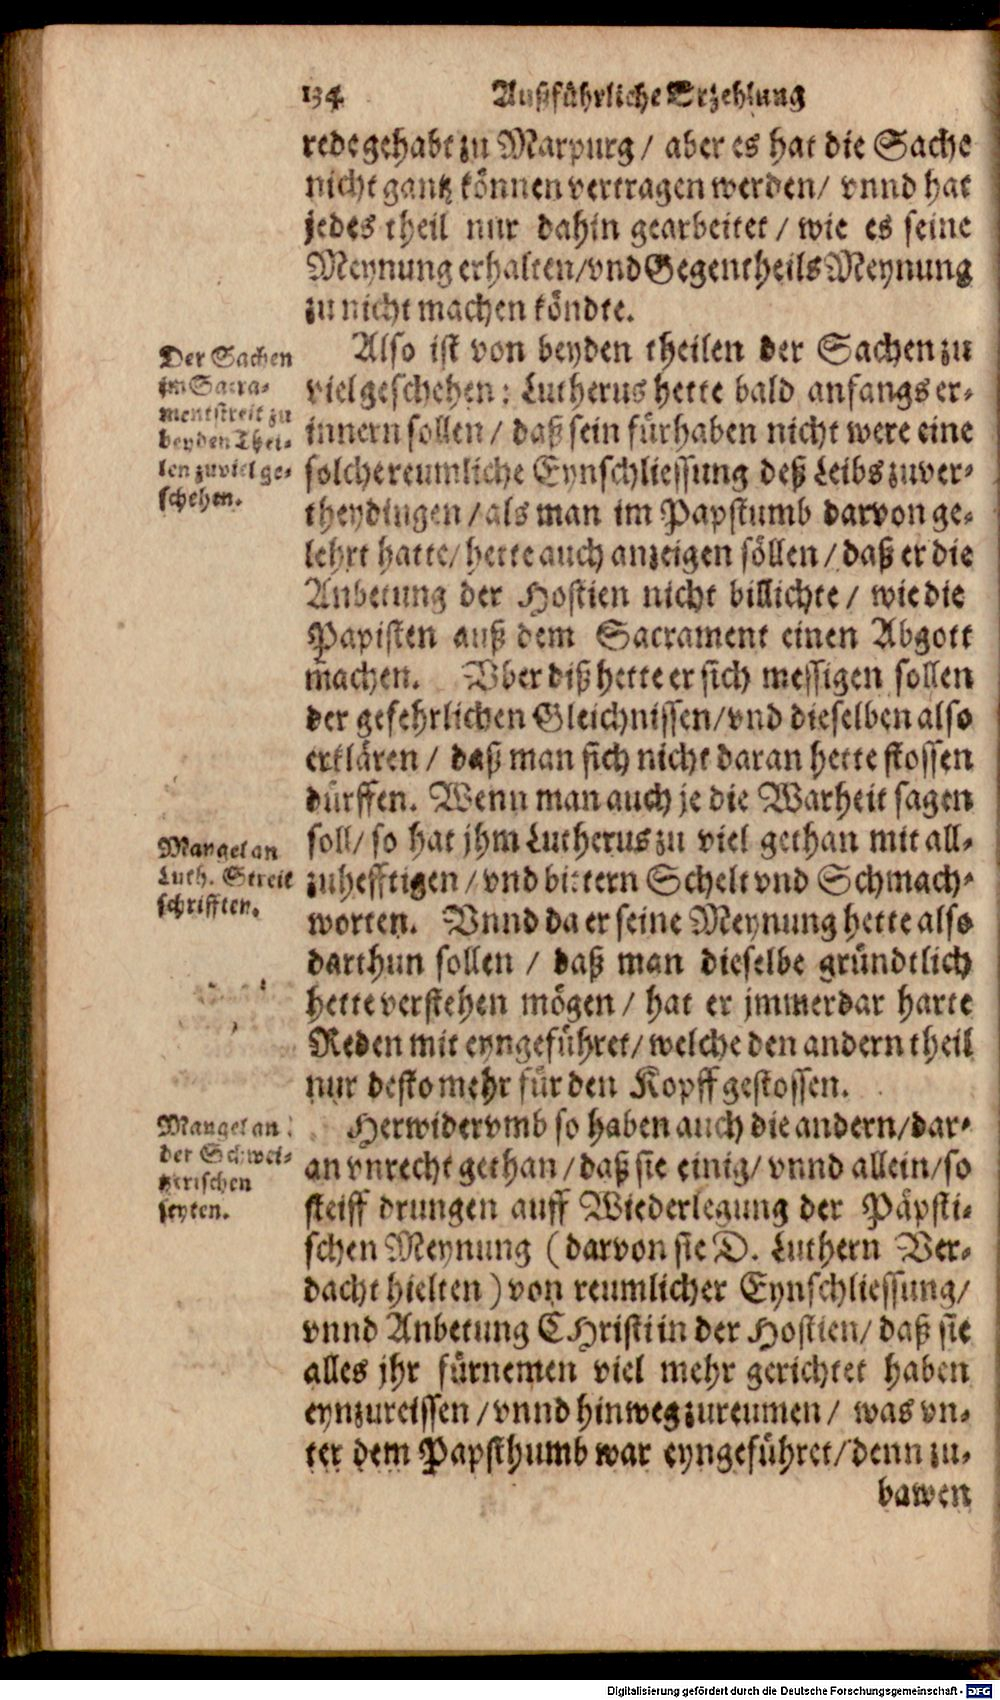 134 Außführliche Erzehlung
rede gehabt zu Marpurg / aber es hat die Sache
nicht gantz können vertragen werden / vnnd hat
jedes theil nur dahin gearbeitet / wie es seine
Meynung erhalten / vnd Gegentheils Meynung
zu nicht machen köndte.
Der Sachen
im Sacra-
mentstreit zu
beyden Thei-
len zuviel ge-
schehen.
Also ist von beyden theilen der Sachen zu
viel geschehen: Lutherus hette bald anfangs er-
innern sollen / daß sein fürhaben nicht were eine
solche reumliche Eynschliessung deß Leibs zuver-
theydingen / als man im Papstumb darvon ge-
lehrt hatte / hette auch anzeigen söllen / daß er die
Anbetung der Hostien nicht billichte / wie die
Papisten auß dem Sacrament einen Abgott
machen. Vber diß hette er sich messigen sollen
der gefehrlichen Gleichnissen / vnd dieselben also
erklären / daß man sich nicht daran hette stossen
dürffen. Wenn man auch je die Warheit sagen
Mangel an
Luth. Streit
schrifften.
soll / so hat jhm Lutherus zu viel gethan mit all-
zuhefftigen / vnd bittern Schelt vnd Schmach-
worten. Vnnd da er seine Meynung hette also
darthun sollen / daß man dieselbe gründtlich
hette verstehen mögen / hat er jmmerdar harte
Reden mit eyngeführet / welche den andern theil
nur desto mehr für den Kopff gestossen.
Mangel an
der Schwei-
tzerischen
seyten.
Herwidervmb so haben auch die andern / dar-
an vnrecht gethan / daß sie einig / vnnd allein / so
steiff drungen auff Wiederlegung der Päpsti-
schen Meynung (darvon sie D. Luthern Ver-
dacht hielten) von reumlicher Eynschliessung /
vnnd Anbetung CHristi in der Hostien / daß sie
alles jhr fürnemen viel mehr gerichtet haben
eynzureissen / vnnd hinweg zureumen / was vn-
ter dem Papsthumb war eyngeführet / denn zu-
bawen
Digitalisierung gefördert durch die Deutsche Forschungsgemeinschaft - DFG